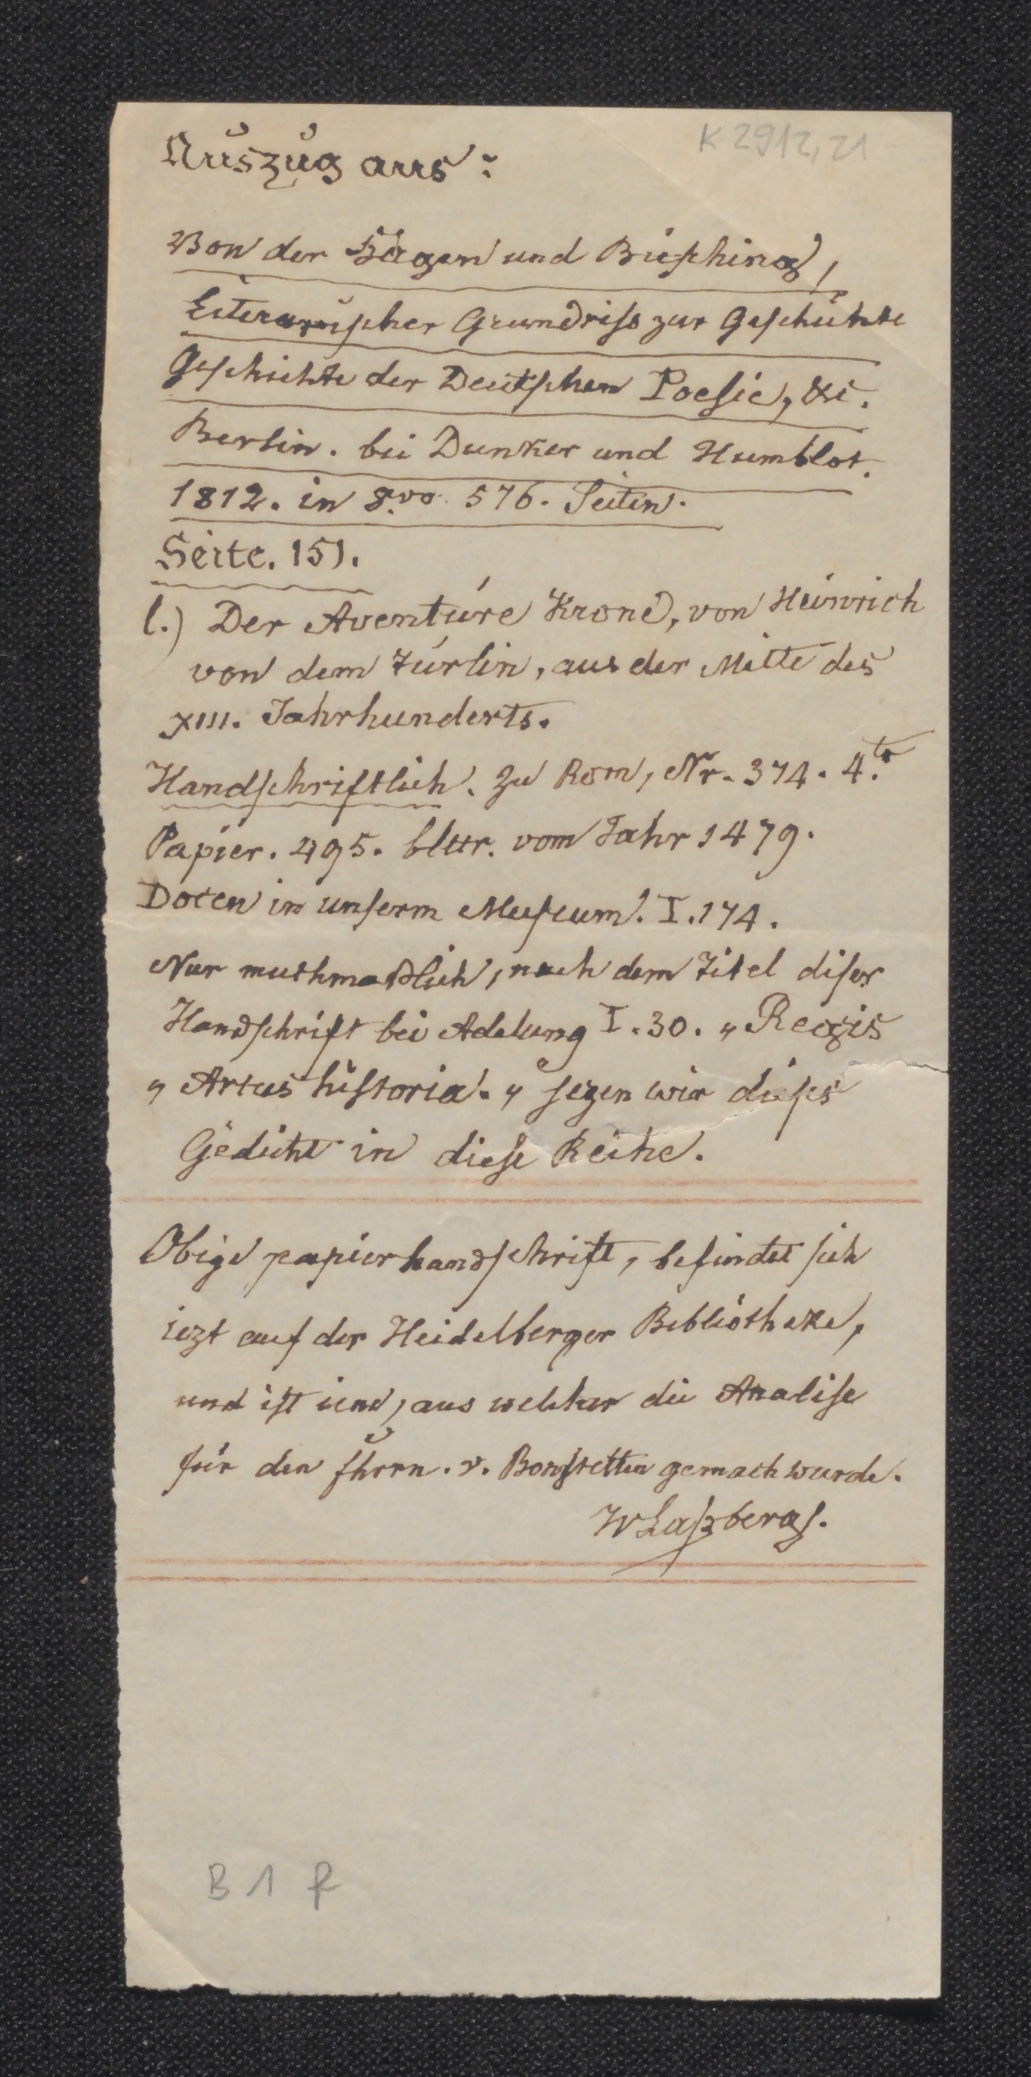 K 2912, 21
Auszug aus:
Von der Hagen und Büsching,
Literarischer Grundriss zur Geschichte
Geschichte der Deutschen Poesie, &c.
Berlin. bei Dunker und Humblot.
1812. in 8.vo 576. Seiten.
Seite. 151.
l.) Der Aventúre Krone, von Heinrich
von dem Túrlin, aus der Mitte des
XIII. Jahrhunderts.
Handschriftlich. zu Rom, Nr. 374. 4.to
Papier. 495. blttr. vom Jahr 1479.
Docen in unserm Museum. I. 174.
Nur muthmaßlich, nach dem Titel diser
Handschrift bei Adelung I. 30. „Regis
„ Artus historia. „ sezen wir dieses
Gedicht in diese Reihe.
Obige papierhandschrift, befindet sich
iezt auf der Heidelberger Bibliotheke,
und ist iene, aus welcher die Analise
für den fhrrn. v. Bonstetten gemach wurde.
JvLaßberg.
B 1 f